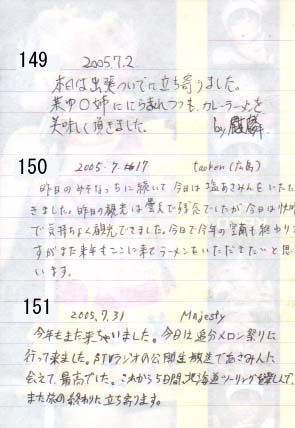 149 2005.7.2
本日は出張ついでに立ち寄りました。
某中〇姉ににらまれつつも、カレーラーメンを
美味しく頂きました。 by 麒麟
150 2005.7.17 taoken(広島)
昨日のみそなっちに続いて今日は塩あさみんをいただ
きました。昨日の観光は曇天で残念でしたが今日は快晴
で気持ちよく観光できました。今日で今年の富良も終わりで
すがまた来年もここに来てラーメンをいただきたいと思
います。
151 2005.7.31 Majesty
今年もまた来ちゃいました。今日は追分メロン祭りに
行って来ました。STVラジオの公開生放送であさみんに
会えて、最高でした。これから5日間、北海道ツーリングを楽しんで、
また旅の終わりに立ち寄ります。